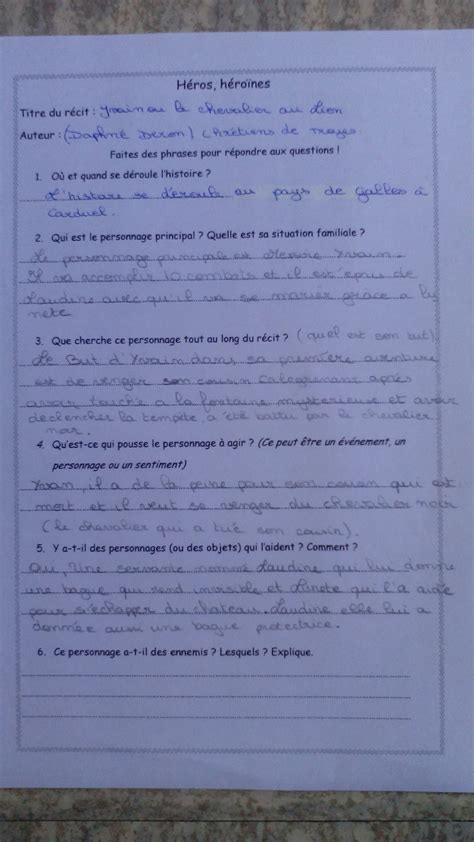 Héros, héroïnes
Titre du récit : Yvain ou le chevalier au Lion
Auteur : (Daphné Deron) Chrétiens de Troyes
Faites des phrases pour répondre aux questions !
1. Où et quand se déroule l'histoire ?
L'histoire se déroule au pays de Galles à
Carduel.
2. Qui est le personnage principal ? Quelle est sa situation familiale ?
Le personnage principale est Messire Yvain.
Il va accomplir 10 combats et il est épris de
Laudine avec qu'il va se marier grace a Lu
nete
3. Que cherche ce personnage tout au long du récit ? (quel est son but)
Le But d'Yvain dans sa première aventure
est de venger son cousin Calogrenant après
avoir touché a la fontaine mysterieuse et avoir
declencher la tempête, a été battu par le chevalier
noir.
4. Qu'est-ce qui pousse le personnage à agir ? (Ce peut être un événement, un
personnage ou un sentiment)
Yvain, il a de la peine pour son cousin qui est
mort et il veut se venger du chevalier noir
(le chevalier qui a tué son cousin).
5. Y a-t-il des personnages (ou des objets) qui l'aident ? Comment ?
Oui, Une servante nommé Laudine qui lui donne
une bague qui rend invisible et Lunete qui l'a aidé
pour s'échapper du chateau. Laudine elle lui a
donnée aussi une bague protectrice.
6. Ce personnage a-t-il des ennemis ? Lesquels ? Explique.